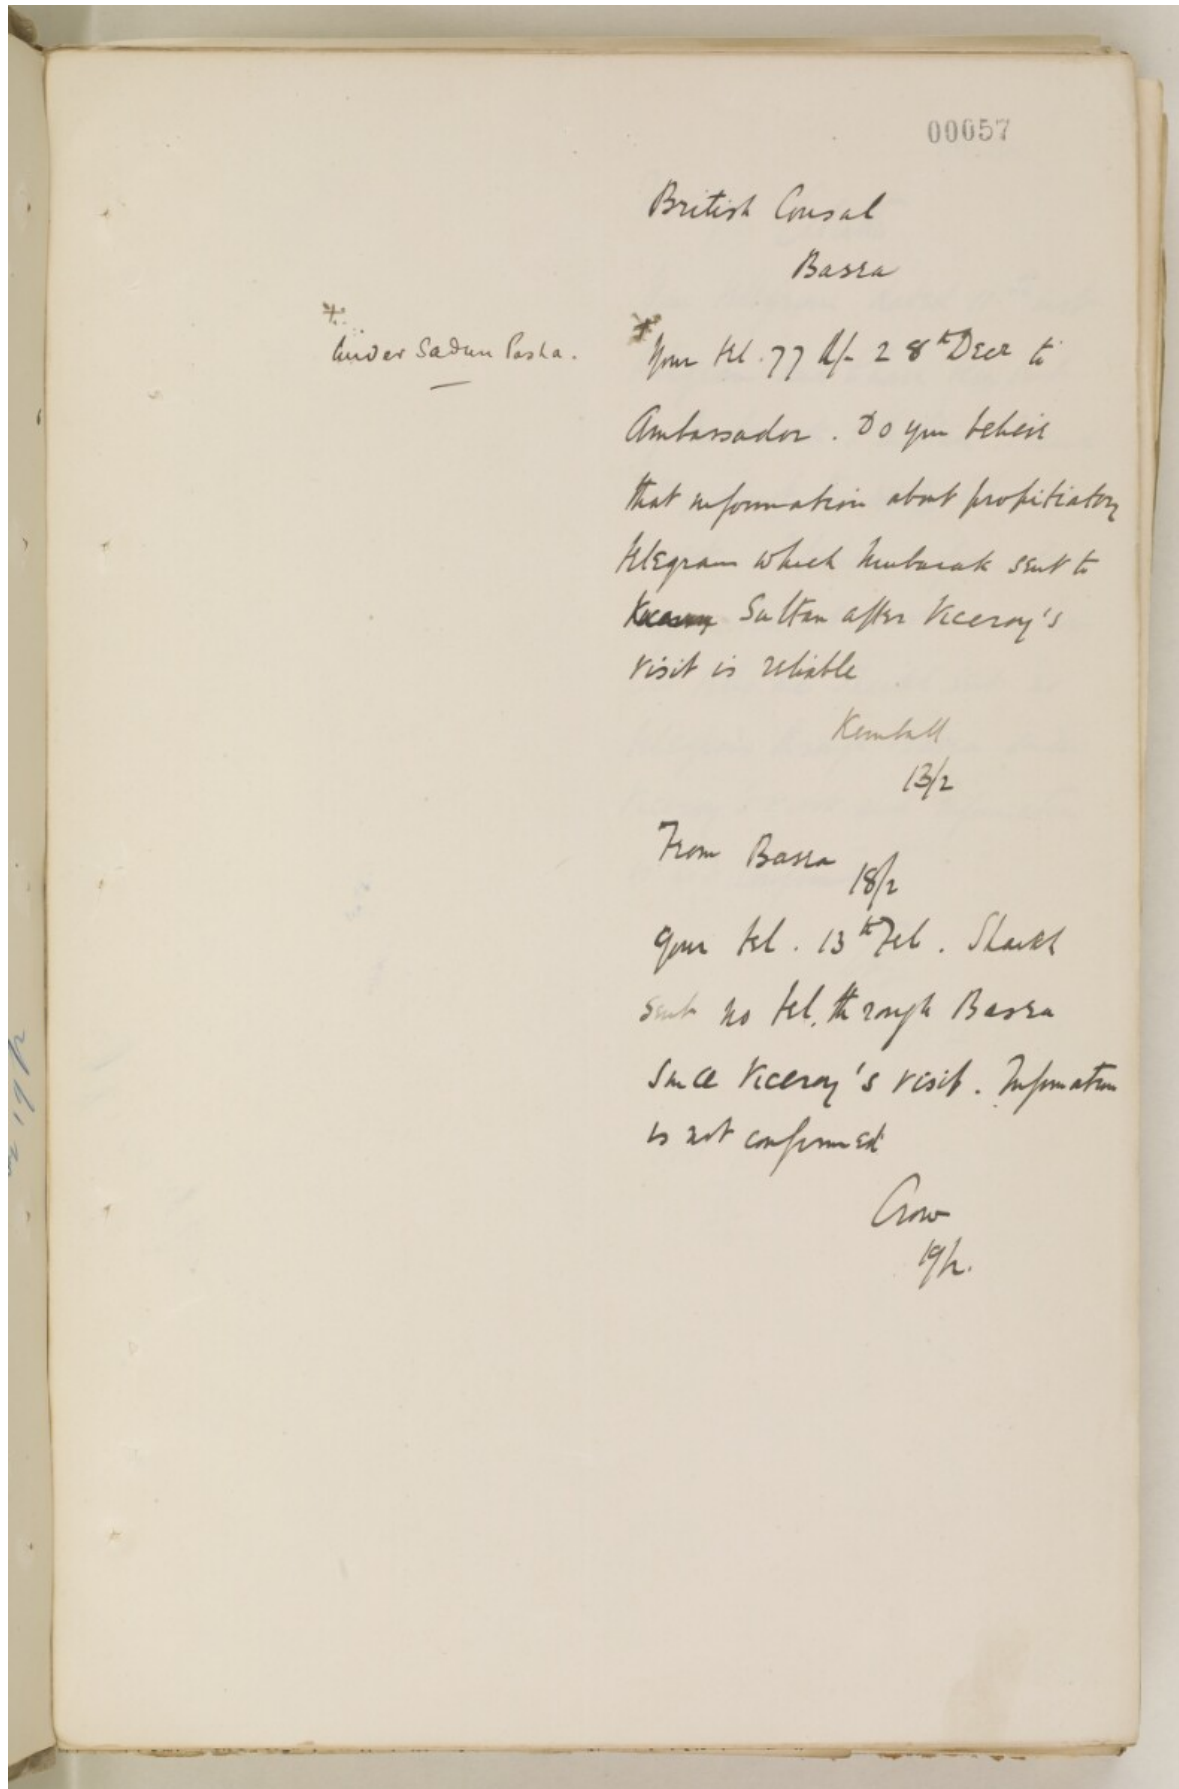 00057
British Consul
Basra
+
Under Sadun Pasha.
+
Your tel. 77 d/- 28th Decr to
Ambassador. Do you believe
that information about propitiatory
telegram which Mubarak sent to
Sultan after Viceroy's
visit is reliable
Kemball
13/2
From Basra
18/2
Your tel. 13th Feb. Shaikh
sent no tel. through Basra
since Viceroy's visit. Information
is not confirmed
Crow
19/2.